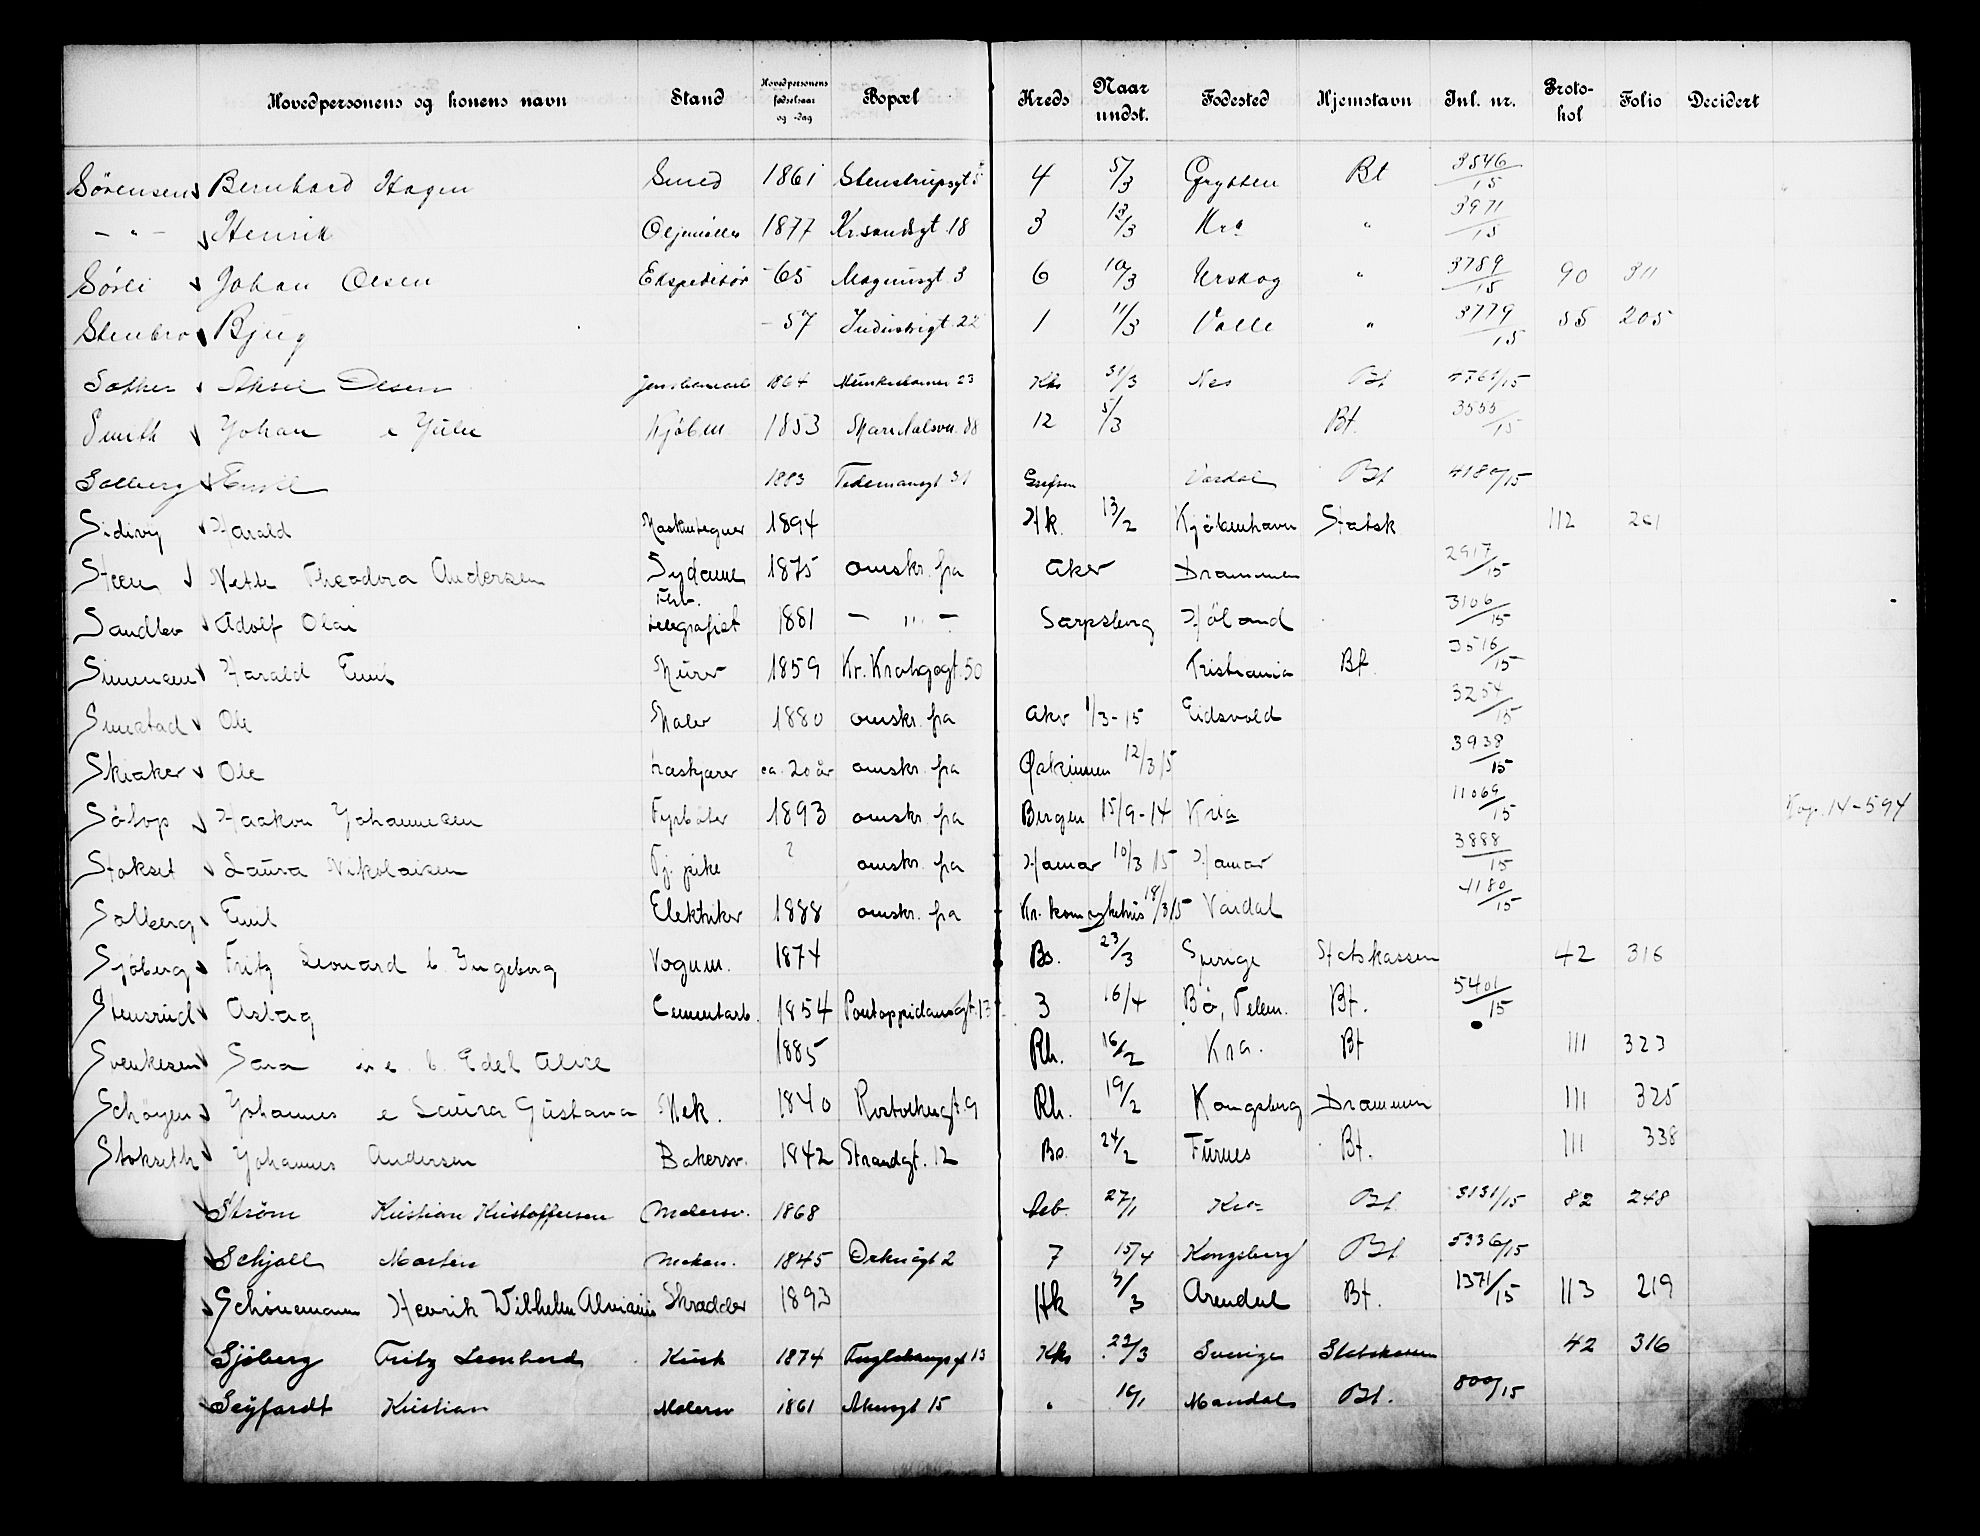 Hovedpersonens og konens navn Stand Hovedpersonens fødselsaar og -dag Bopæl Kreds Naar undst. Fødested Hjemstavn Jnl. nr. Proto-kol Folio Decidert
Sörensen Bernhard Hagen Smed 1861 Stenstrupsgt 5 4 5/3 Grytten Bt 3546/15
— " — Henrik 1877 Kr.sandsgt. 18 3 13/3 Kra " 3971/15
Sörli Johan Olsen Ekspeditör -65 Magnusgt. 3 6 10/3 Urskog " 3789/15 90 311
Stenbro Bjug -57 Industrigt. 22 1 11/3 Valle " 3779/15 55 205
Sather Aksel Olsen 1864 23 Kks 31/3 Nes Bt 15
Smith Johan e Julie Kjöbm. 1853 Maridalsvn. 88 12 5/3 Bt. 3555/15
Solberg Emil 1883 Tidemansgt 31 Grefsen Vardal Bt 4180/15
Sidivy Harald Maskintegner 1894 Hk. 13/2 Kjöbenhavn Statsk 112 261
Steen Nette Theodora Andersen Sydame 1875 omskr. fra Aker Drammen 2917/15
Sandbo Adolf Olai telegrafist 1881 — " — Sarpsborg Höland 3106/15
Simensen Harald Emil Murer 1859 Kr. Krohgsgt. 50 Kristiania Bt. 3516/15
Smestad Ole Maler 1880 omskr. fra Aker 1/3-15 Eidsvold 3254/15
Skiaker Ole Laskjører ca. 20 år omskr. fra 12/3 15 3938/15
Sötop Haakon Johannesen Fyrböter 1893 omskr. fra Bergen 15/9-14 Kria 11069/15 Kop. 14-594
Stokset Laura Nikolaisen Tj. pike ? omskr. fra Hamar 10/3 15 Hamar 3888/15
Solberg Emil Elektriker 1888 omskr. fra Kr. kom. sykehus 18/3 15 Vardal 4180/15
Sjöberg Fritz Leonard b. Ingeborg Vognm. 1874 Bs. 23/3 Sverige Statskassen 42 316
Stensrud Aslag Cementarb. 1854 Pontoppidansgt. 13 3 16/4 Bö, Telem. Bt. 5401/15
Svenkesen Sara b. Edel Alice 1885 Rh. 16/2 Kra. Bt 111 323
Schöyen Johannes e Laura Gustava Mek. 1840 Rostockergt. 9 Rh. 19/2 Kongsberg Drammen 111 325
Stokseth Johannes Andersen Bakersv. 1842 Strandgt. 12 Bs. 24/2 Furnes Bt. 111 338
Ström Kristian Kristoffersen Malersv. 1868 27/1 Kra Bt 3131/15 82 248
Schjoll Marten Mekan. 1845 Orknögt 2 7 15/4 Kongsberg Bt 5336/15
Schönemann Henrik Wilhelm Skradder 1893 Hk 3/3 Arendal Bt. 1371/15 113 219
Sjöberg Fritz Leonhard Kusk 1874 Fuglehaugsgt 13 Kks 22/3 Sverige Statskassen 42 316
Seyfardt Kristian Malersv 1861 Akersgt 15 " 16/1 Mandal Bt. 800/15